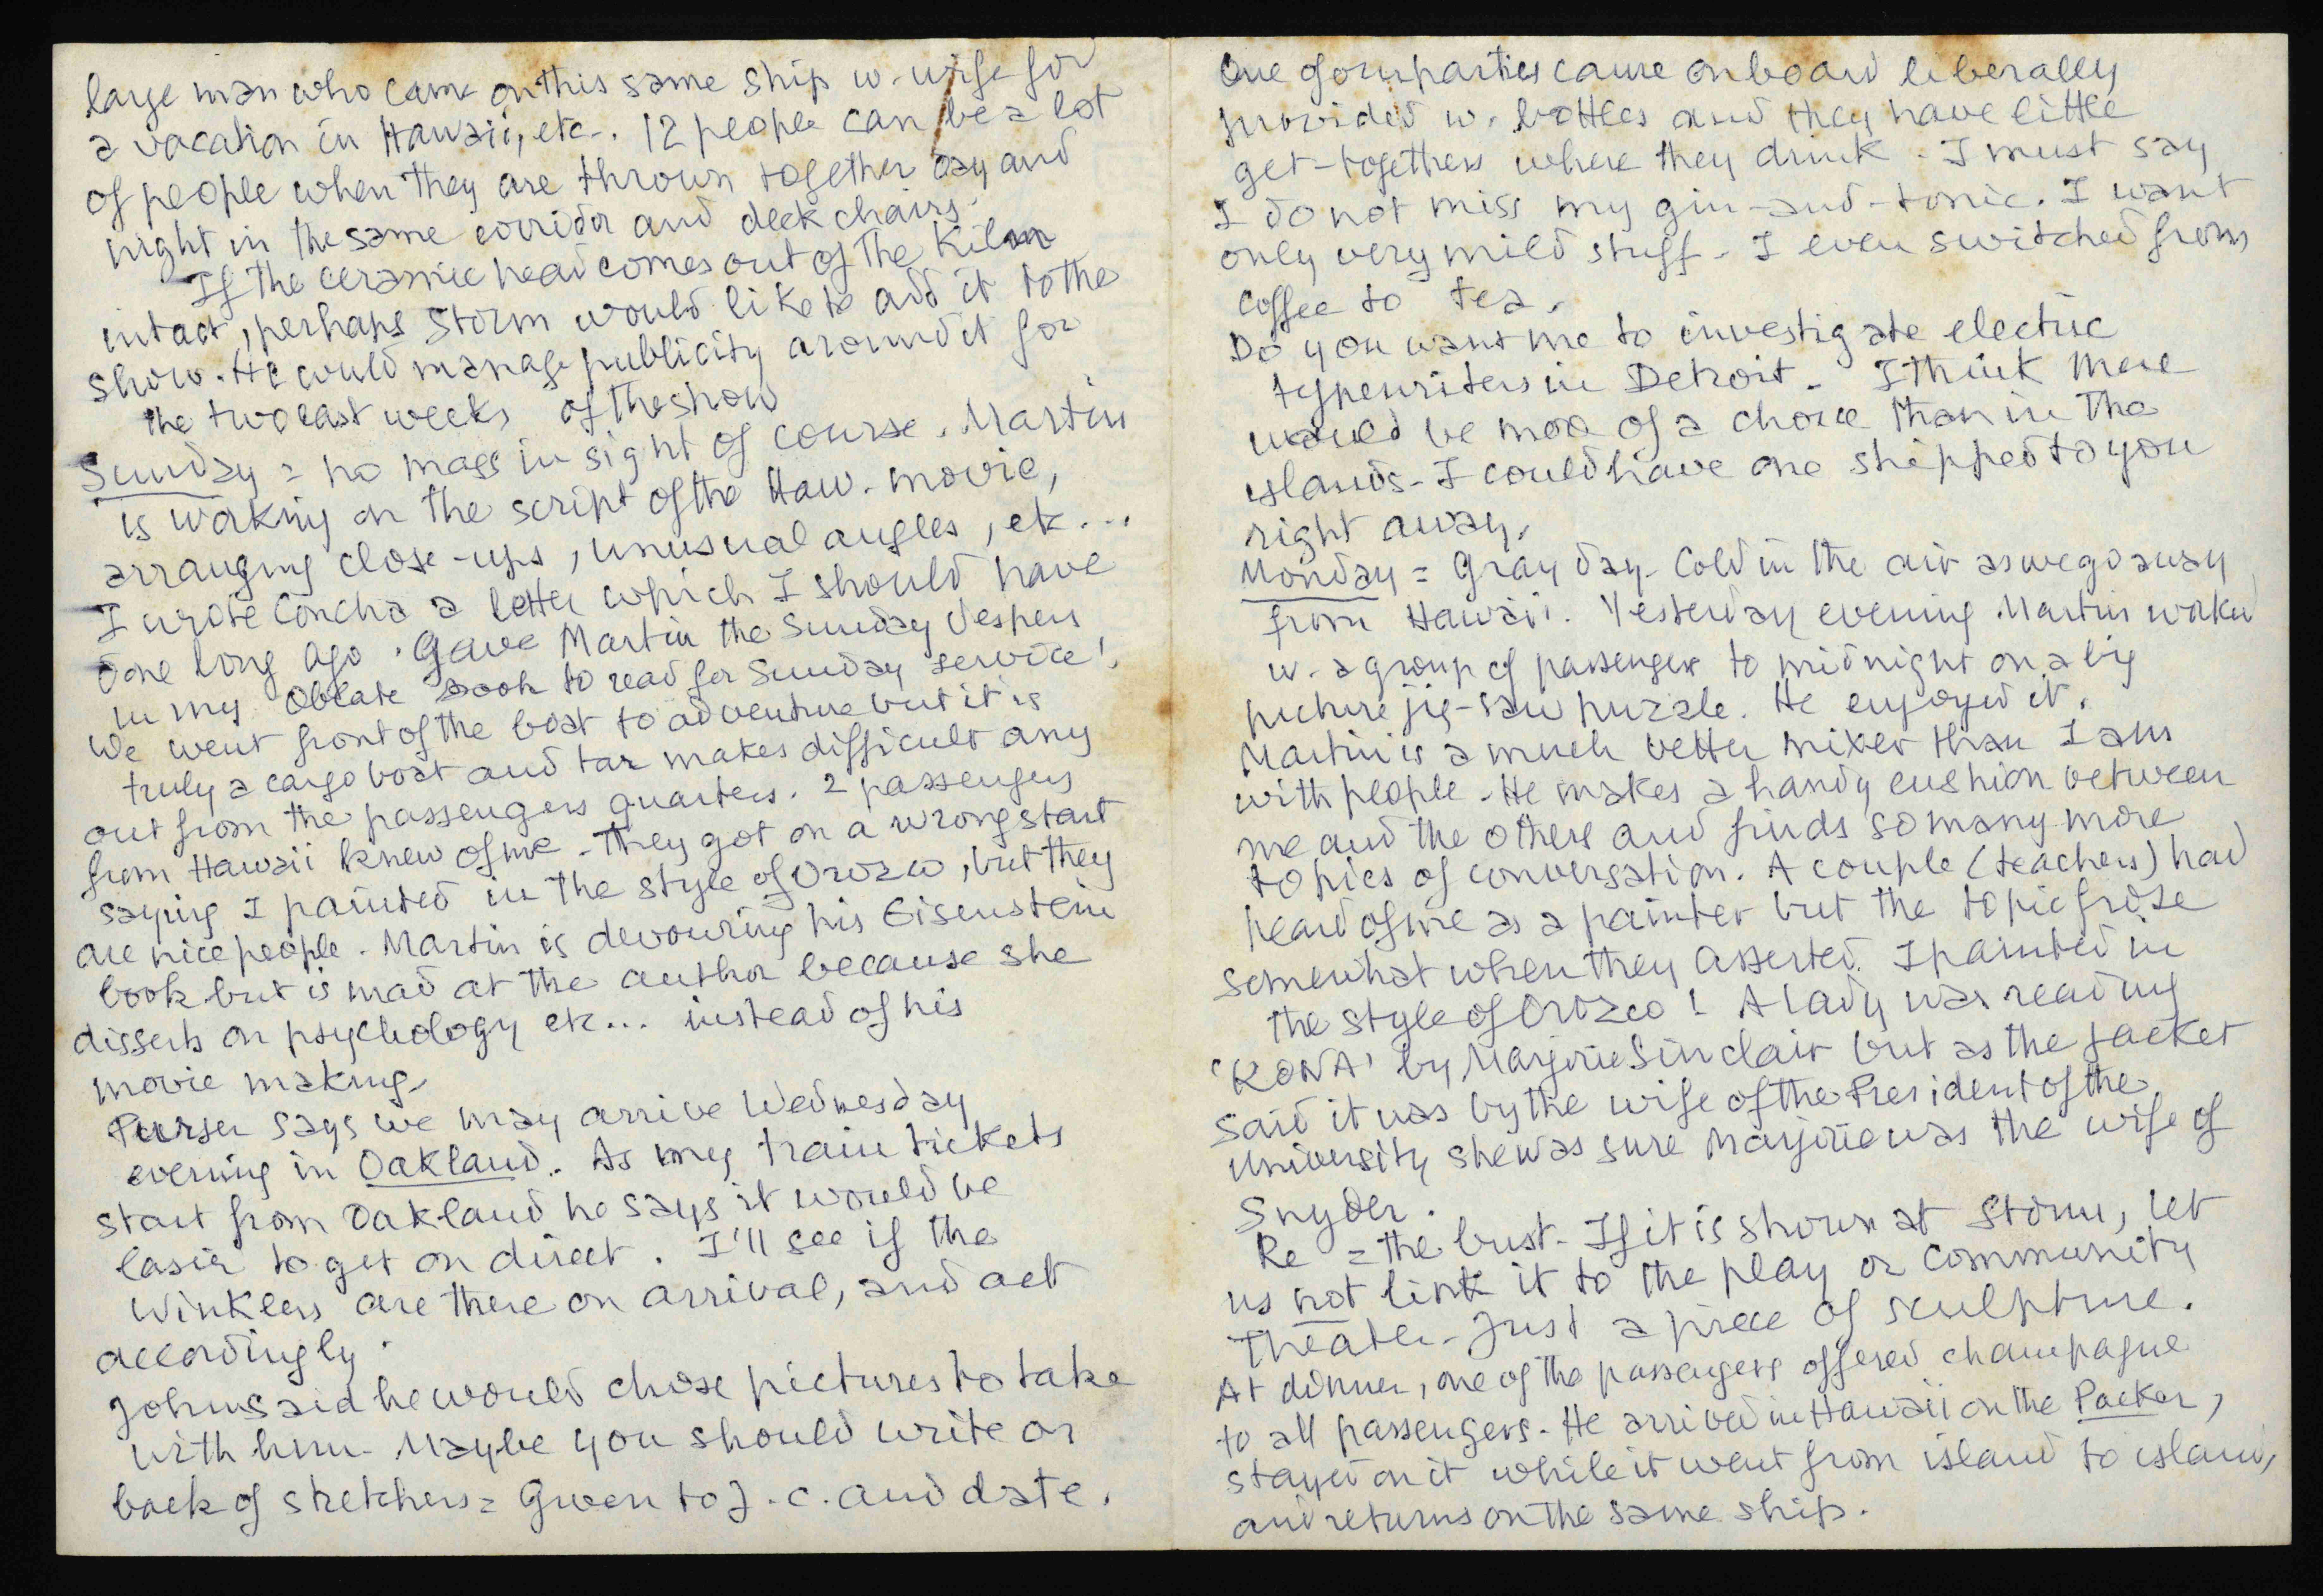 large man who came on this same ship w. wife for
a vacation in Hawaii, etc.. 12 people can be a lot
of people when they are thrown together day and
night in the same corridor and deck chairs.
If the ceramic head comes out of the Kiln
intact, perhaps Storm would like to add it to the
show. He could manage publicity around it for
the two last weeks of the show
Sunday = no mass in sight of course. Martin
is working on the script of the Haw. movie,
arranging close-ups, unusual angles, etc...
I wrote Concha a letter which I should have
done long ago. Gave Martin the Sunday Vespers
in my Oblate book to read for Sunday 'service'.
We went front of the boat to adventure but it is
truly a cargo boat and tar makes difficult any
out from the passengers quarters. 2 passengers
from Hawaii knew of me. They got on a wrong start
saying I painted in the style of Orozco, but they
are nice people. Martin is devouring his Eisenstein
book but is mad at the author because she
disserts on psychology etc... instead of his
movie making.
Purser says we may arrive Wednesday
evening in Oakland. As my train tickets
start from Oakland he says it would be
easier to get on direct. I'll see if the
Winklers are there on arrival, and act
accordingly.
John said he would chose pictures to take
with him. Maybe you should write on
back of stretchers = Given to J.C. and date.
One of our parties came on board liberally
provided w. bottles and they have little
get-togethers where they drink. I must say
I do not miss my gin-and-tonic. I want
only very mild stuff. I even switched from
coffee to tea.
Do you want me to investigate electric
typewriters in Detroit. I think there
would be more of a choice than in the
islands. I could have one shipped to you
right away.
Monday = Gray day. Cold in the air as we go away
from Hawaii. Yesterday evening Martin worked
w. a group of passengers to midnight on a big
picture jig-saw puzzle. He enjoyed it.
Martin is a much better mixer than I am
with people. He makes a handy cushion between
me and the others and finds so many more
topics of conversation. A couple (teachers) had
heard of me as a painter but the topic froze
somewhat when they asserted I painted in
the style of Orozco! A lady was reading
'KONA' by Marjorie Sinclair but as the jacket
said it was by the wife of the President of the
University she was sure Marjorie was the wife of
Snyder.
Re = the bust. If it is shown at Storm, let
us not link it to the play or community
theater. Just a piece of sculpture.
At dinner, one of the passengers offered champagne
to all passengers. He arrived in Hawaii on the Packer,
stayed on it while it went from island to island,
and returns on the same ship.